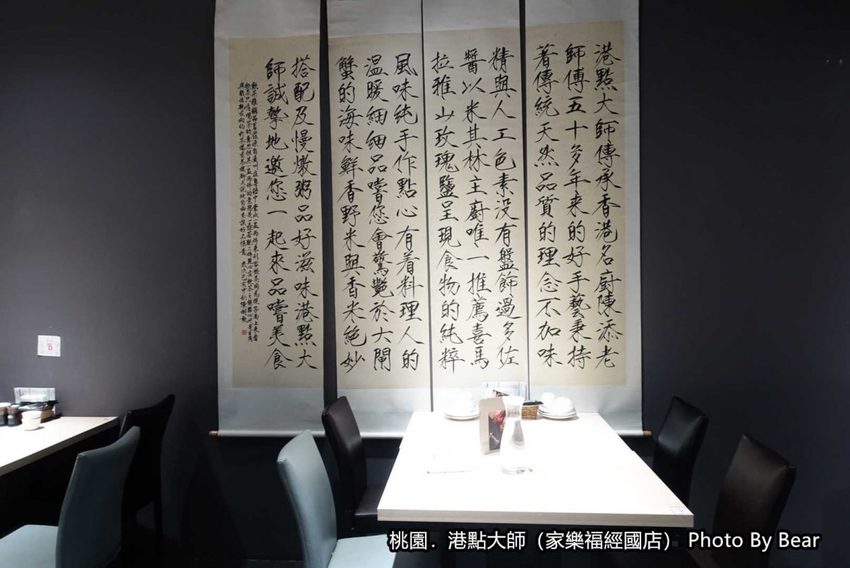 港點大師傳承香港名廚陳添老
師傅五十多年来的好手藝秉持
著傳統天然品質的理念不加味
精與人工色素没有盤飾過多佐
醬以米其林主廚唯一推薦喜馬
拉雅山玫瑰鹽呈現食物的純粹
風味純手作點心有着料理人的
溫暖細細品嚐您會驚艷於大閘
蟹的海味鮮香野米與香米絕妙
搭配及慢燉粥品好滋味港點大
師誠摯地邀您一起來品嚐美食
桃園．港點大師（家樂福經國店） Photo By Bear